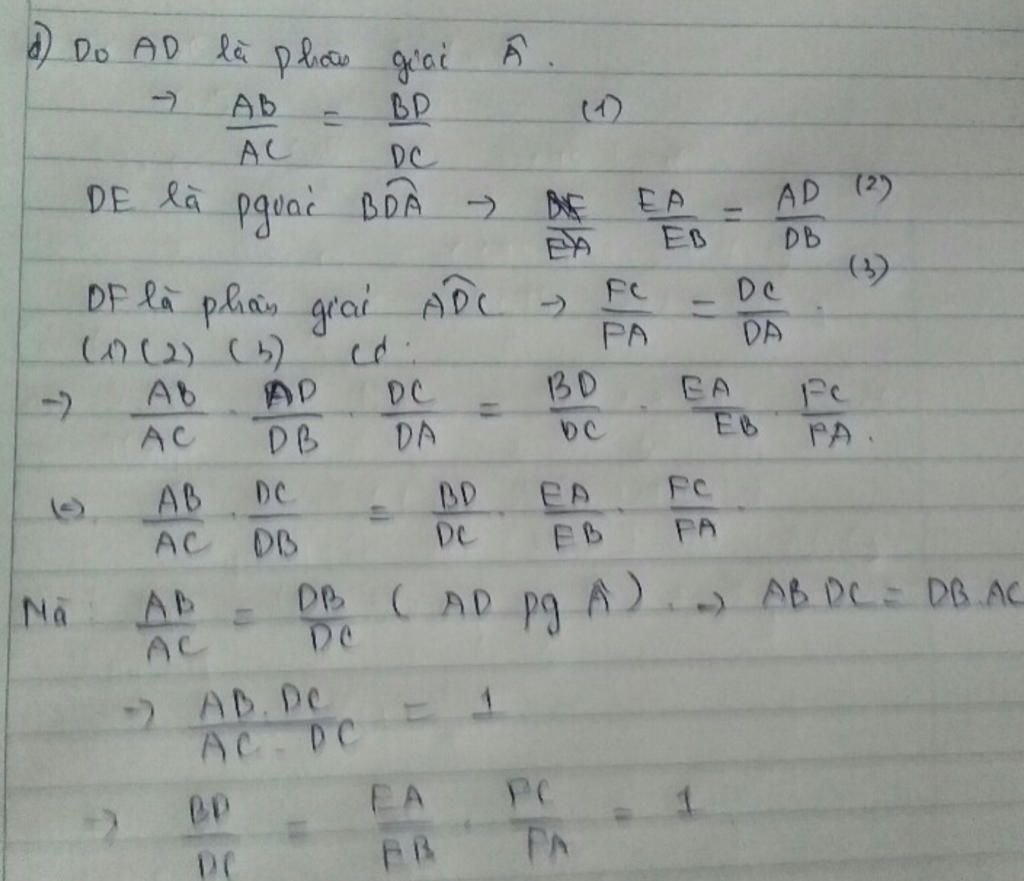 d) Do AD là phân giai Â.
→ AB/AC = BD/DC (1)
DE là pguai BDA → EA/EB = AD/DB (2)
DF là phân giai ADC → FC/FA = DC/DA. (3)
(1) (2) (3) cd:
→ AB/AC . AD/DB . DC/DA = BD/DC . EA/EB . FC/FA.
(=) AB/AC . DC/DB = BD/DC . EA/EB . FC/FA.
Mà AB/AC = DB/DC ( AD pg Â). → AB DC = DB.AC
→ AB.DC/AC.DC = 1
→ BD/DC = EA/EB . FC/FA = 1